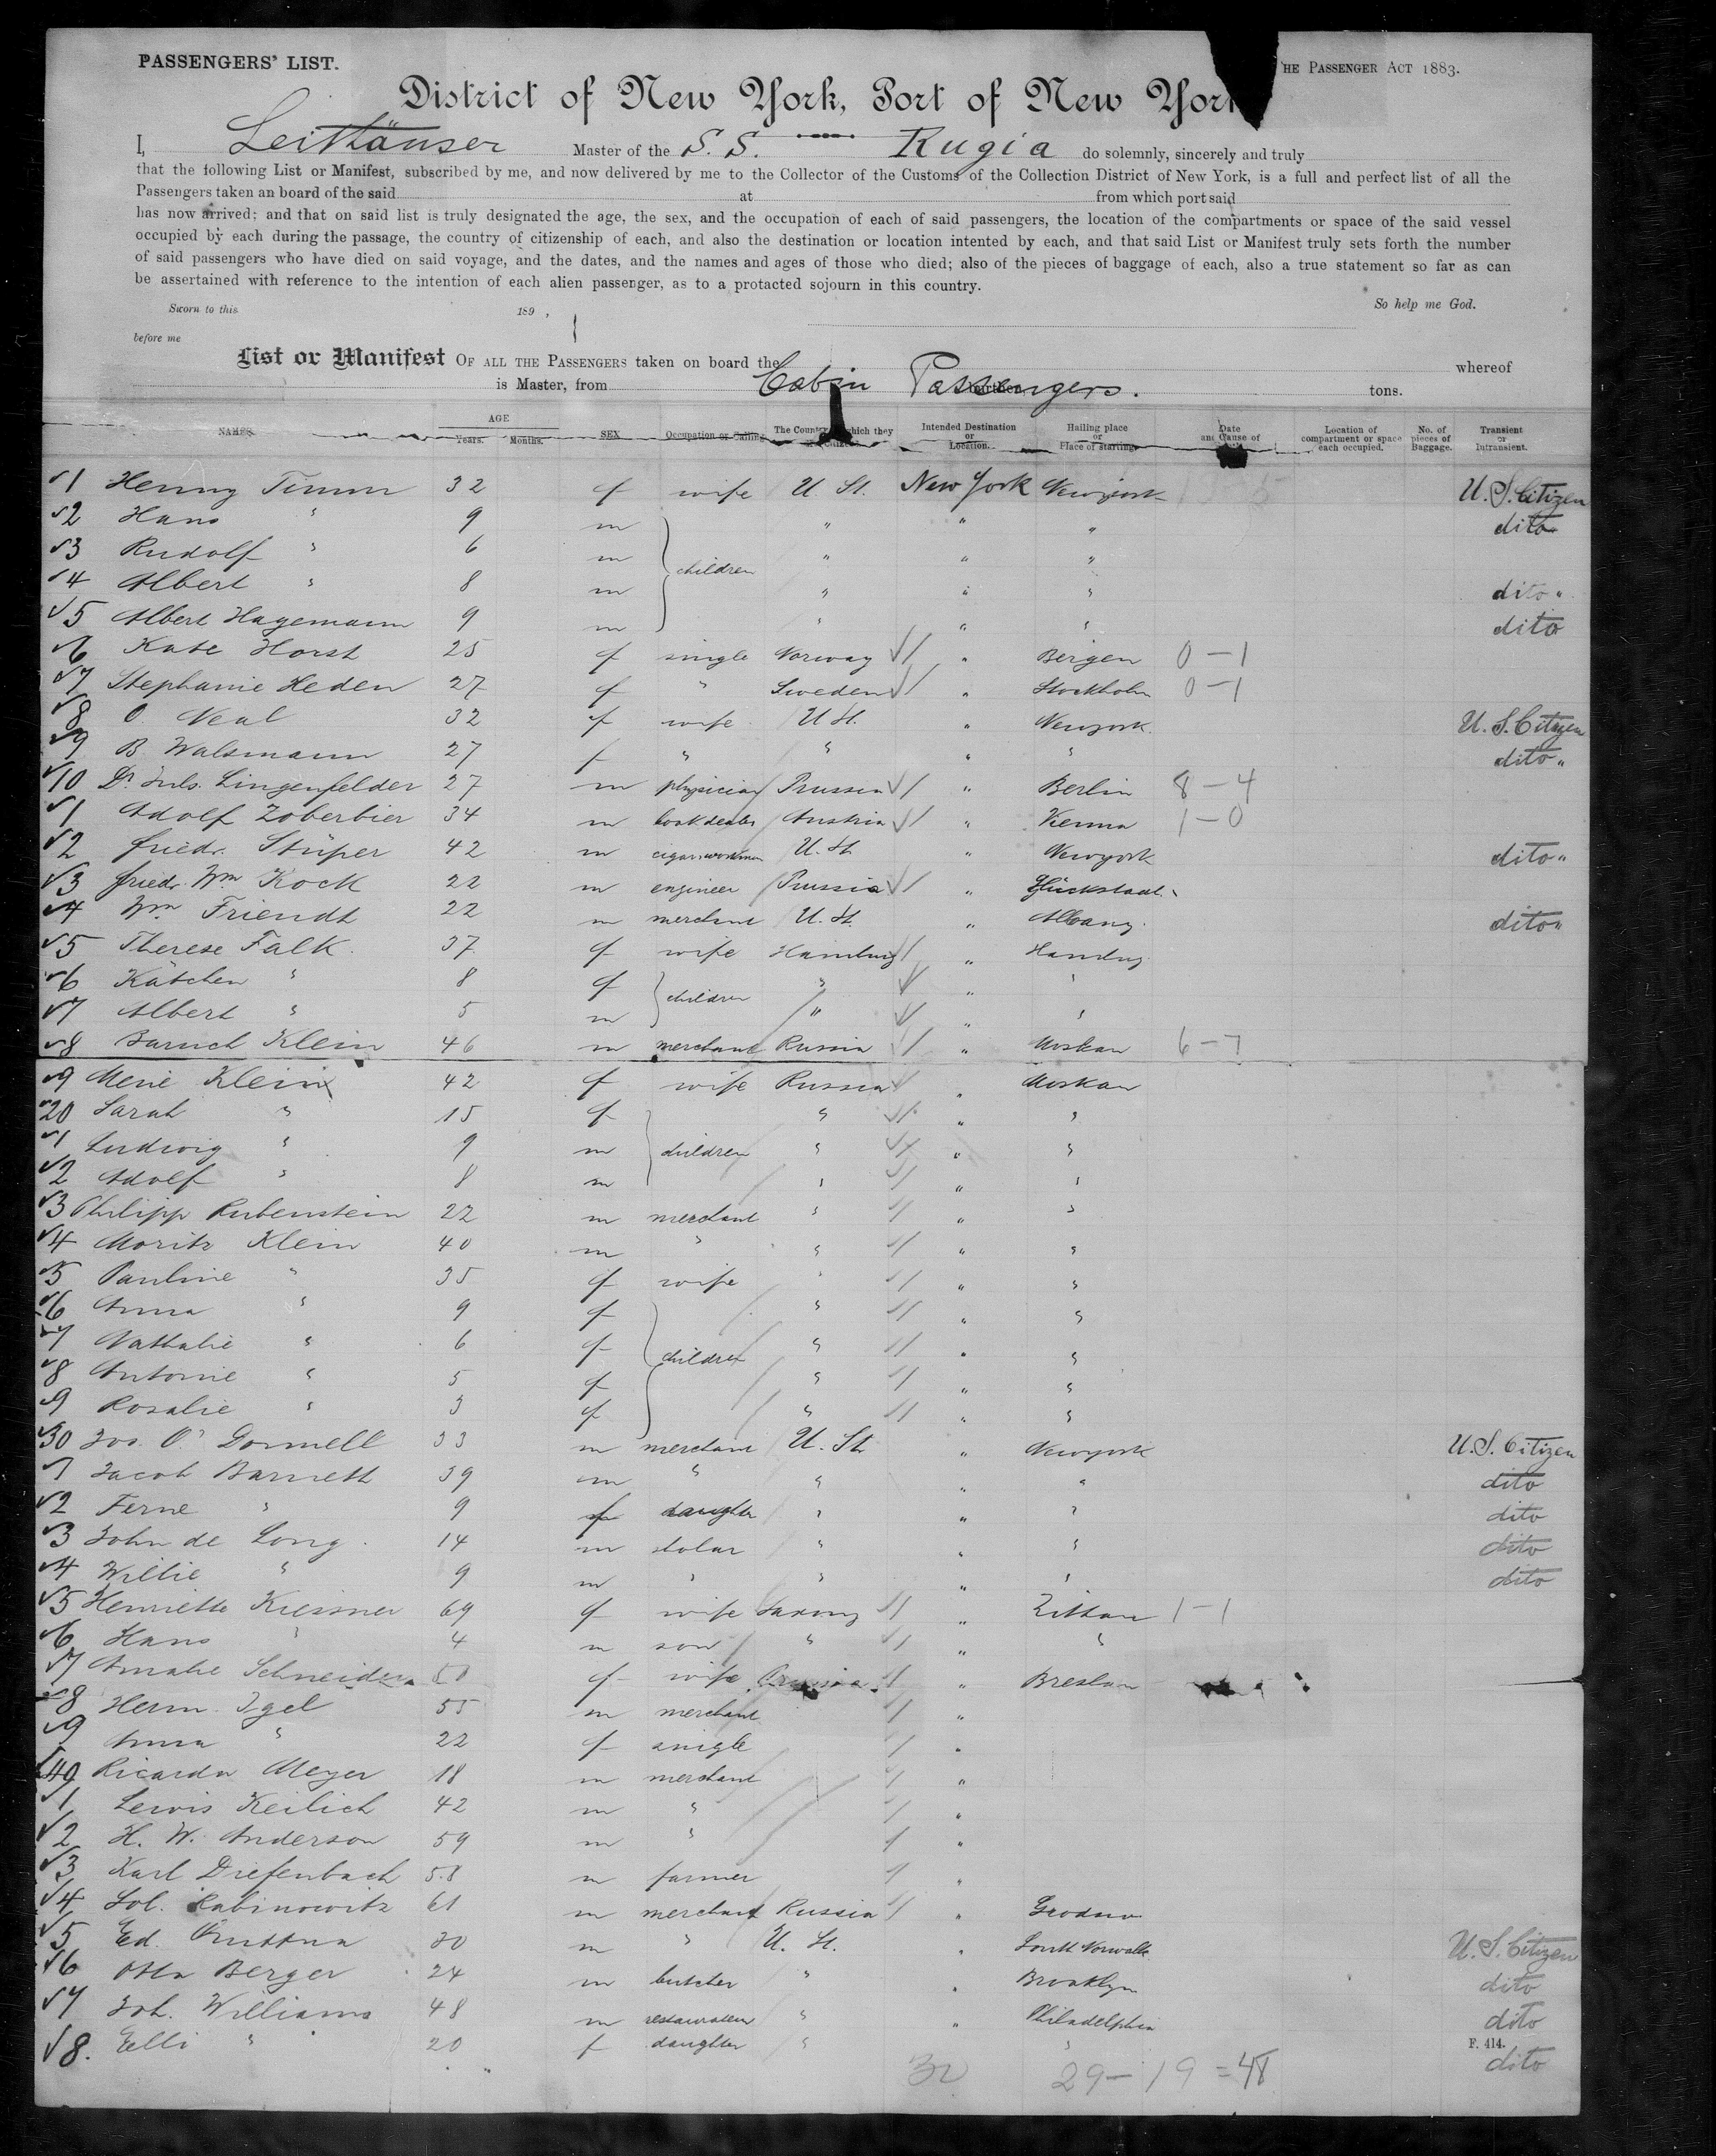 PASSENGERS' LIST.
HE PASSENGER ACT 1883.
District of New York, Port of New York
I, Leithäuser Master of the S. S. Rugia do solemnly, sincerely and truly
that the following List or Manifest, subscribed by me, and now delivered by me to the Collector of the Customs of the Collection District of New York, is a full and perfect list of all the
Passengers taken an board of the said at from which port said
has now arrived; and that on said list is truly designated the age, the sex, and the occupation of each of said passengers, the location of the compartments or space of the said vessel
occupied by each during the passage, the country of citizenship of each, and also the destination or location intented by each, and that said List or Manifest truly sets forth the number
of said passengers who have died on said voyage, and the dates, and the names and ages of those who died; also of the pieces of baggage of each, also a true statement so far as can
be assertained with reference to the intention of each alien passenger, as to a protacted sojourn in this country.
Sworn to this 189 , So help me God.
before me
List or Manifest OF ALL THE PASSENGERS taken on board the whereof
is Master, from Cabin Passengers. tons.
NAMES. AGE Years. Months. SEX Occupation or Calling The Country which they Intended Destination or Location. Hailing place or Place of starting Date and Cause of Location of compartment or space each occupied. No. of pieces of Baggage. Transient or Intransient.
1 Henny Timm 32 f wife U St. New York Newyork U. S. Citizen
2 Hans " 9 m " " " dito
3 Rudolf " 6 m children " " "
4 Albert " 8 m " " " dito "
5 Albert Hagemann 9 m " " " dito
6 Kate Horst 25 f single Norway " Bergen 0-1
7 Stephanie Heden 27 f " Sweden " Stockholm 0-1
8 O. Neal 32 f wife U St. " Newyork. U. S. Citizen
9 B Walsmann 27 f " " " " dito "
10 Dr. Juls. Lingenfelder 27 m physician Prussia " Berlin 8-4
1 Adolf Zoberbier 34 m bookdealer Austria " Vienna 1-0
2 Friedr. Stüper 42 m cigarworkman U. St " Newyork dito "
3 Friedr. Wm Kock 22 m engineer Prussia " Glückstadt
4 Wm Friendt 22 m merchant U. St. " Albany. dito "
5 Therese Falk. 37 f wife Hamburg " Hamburg
6 Kätchen " 8 f children " " "
7 Albert " 5 m " " "
8 Baruch Klein 46 m merchant Russia " Moskau 6-7
9 Merie Klein 42 f wife Russia " Moskau
20 Sarah " 15 f " " "
1 Ludwig " 9 m children " " "
2 Adolf " 8 m " " "
3 Philipp Rubenstein 22 m merchant " " "
4 Moritz Klein 40 m " " " "
5 Pauline " 35 f wife " " "
6 Anna " 9 f " " "
7 Nathalie " 6 f children " " "
8 Antonie " 5 f " " "
9 Rosalie " 3 f " " "
30 Jos. O'Donnell 33 m merchant U. St " Newyork U. S. Citizen
1 Jacob Barnett 39 m " " " " dito
2 Ferne " 9 f daughter " " " dito
3 John de Long. 14 m skolar " " " dito
4 Willie " 9 m " " " " dito
5 Henriette Kiessner 69 f wife Saxony " Zittau 1-1
6 Hans " 4 m son " " "
7 Amalie Schneider 50 f wife Prussia " Breslau
8 Herm. Igel 55 m merchant "
9 Anna " 22 f single "
40 Ricardo Meyer 18 m merchant "
1 Lewis Keilich 42 m " "
2 H. W. Anderson 59 m " "
3 Karl Diefenbach 58 m farmer "
4 Sol. Rabinowitz 61 m merchant Russia " Grodno
5 Ed. 30 m " U. St. " South Norwalk U. S. Citizen
6 Otto Berger 24 m butcher " " Brooklyn dito
7 Joh. Williams 48 m restaurateur " " Philadelphia dito
8. Elli " 20 f daughter " " F. 414. dito
32 29-19=48